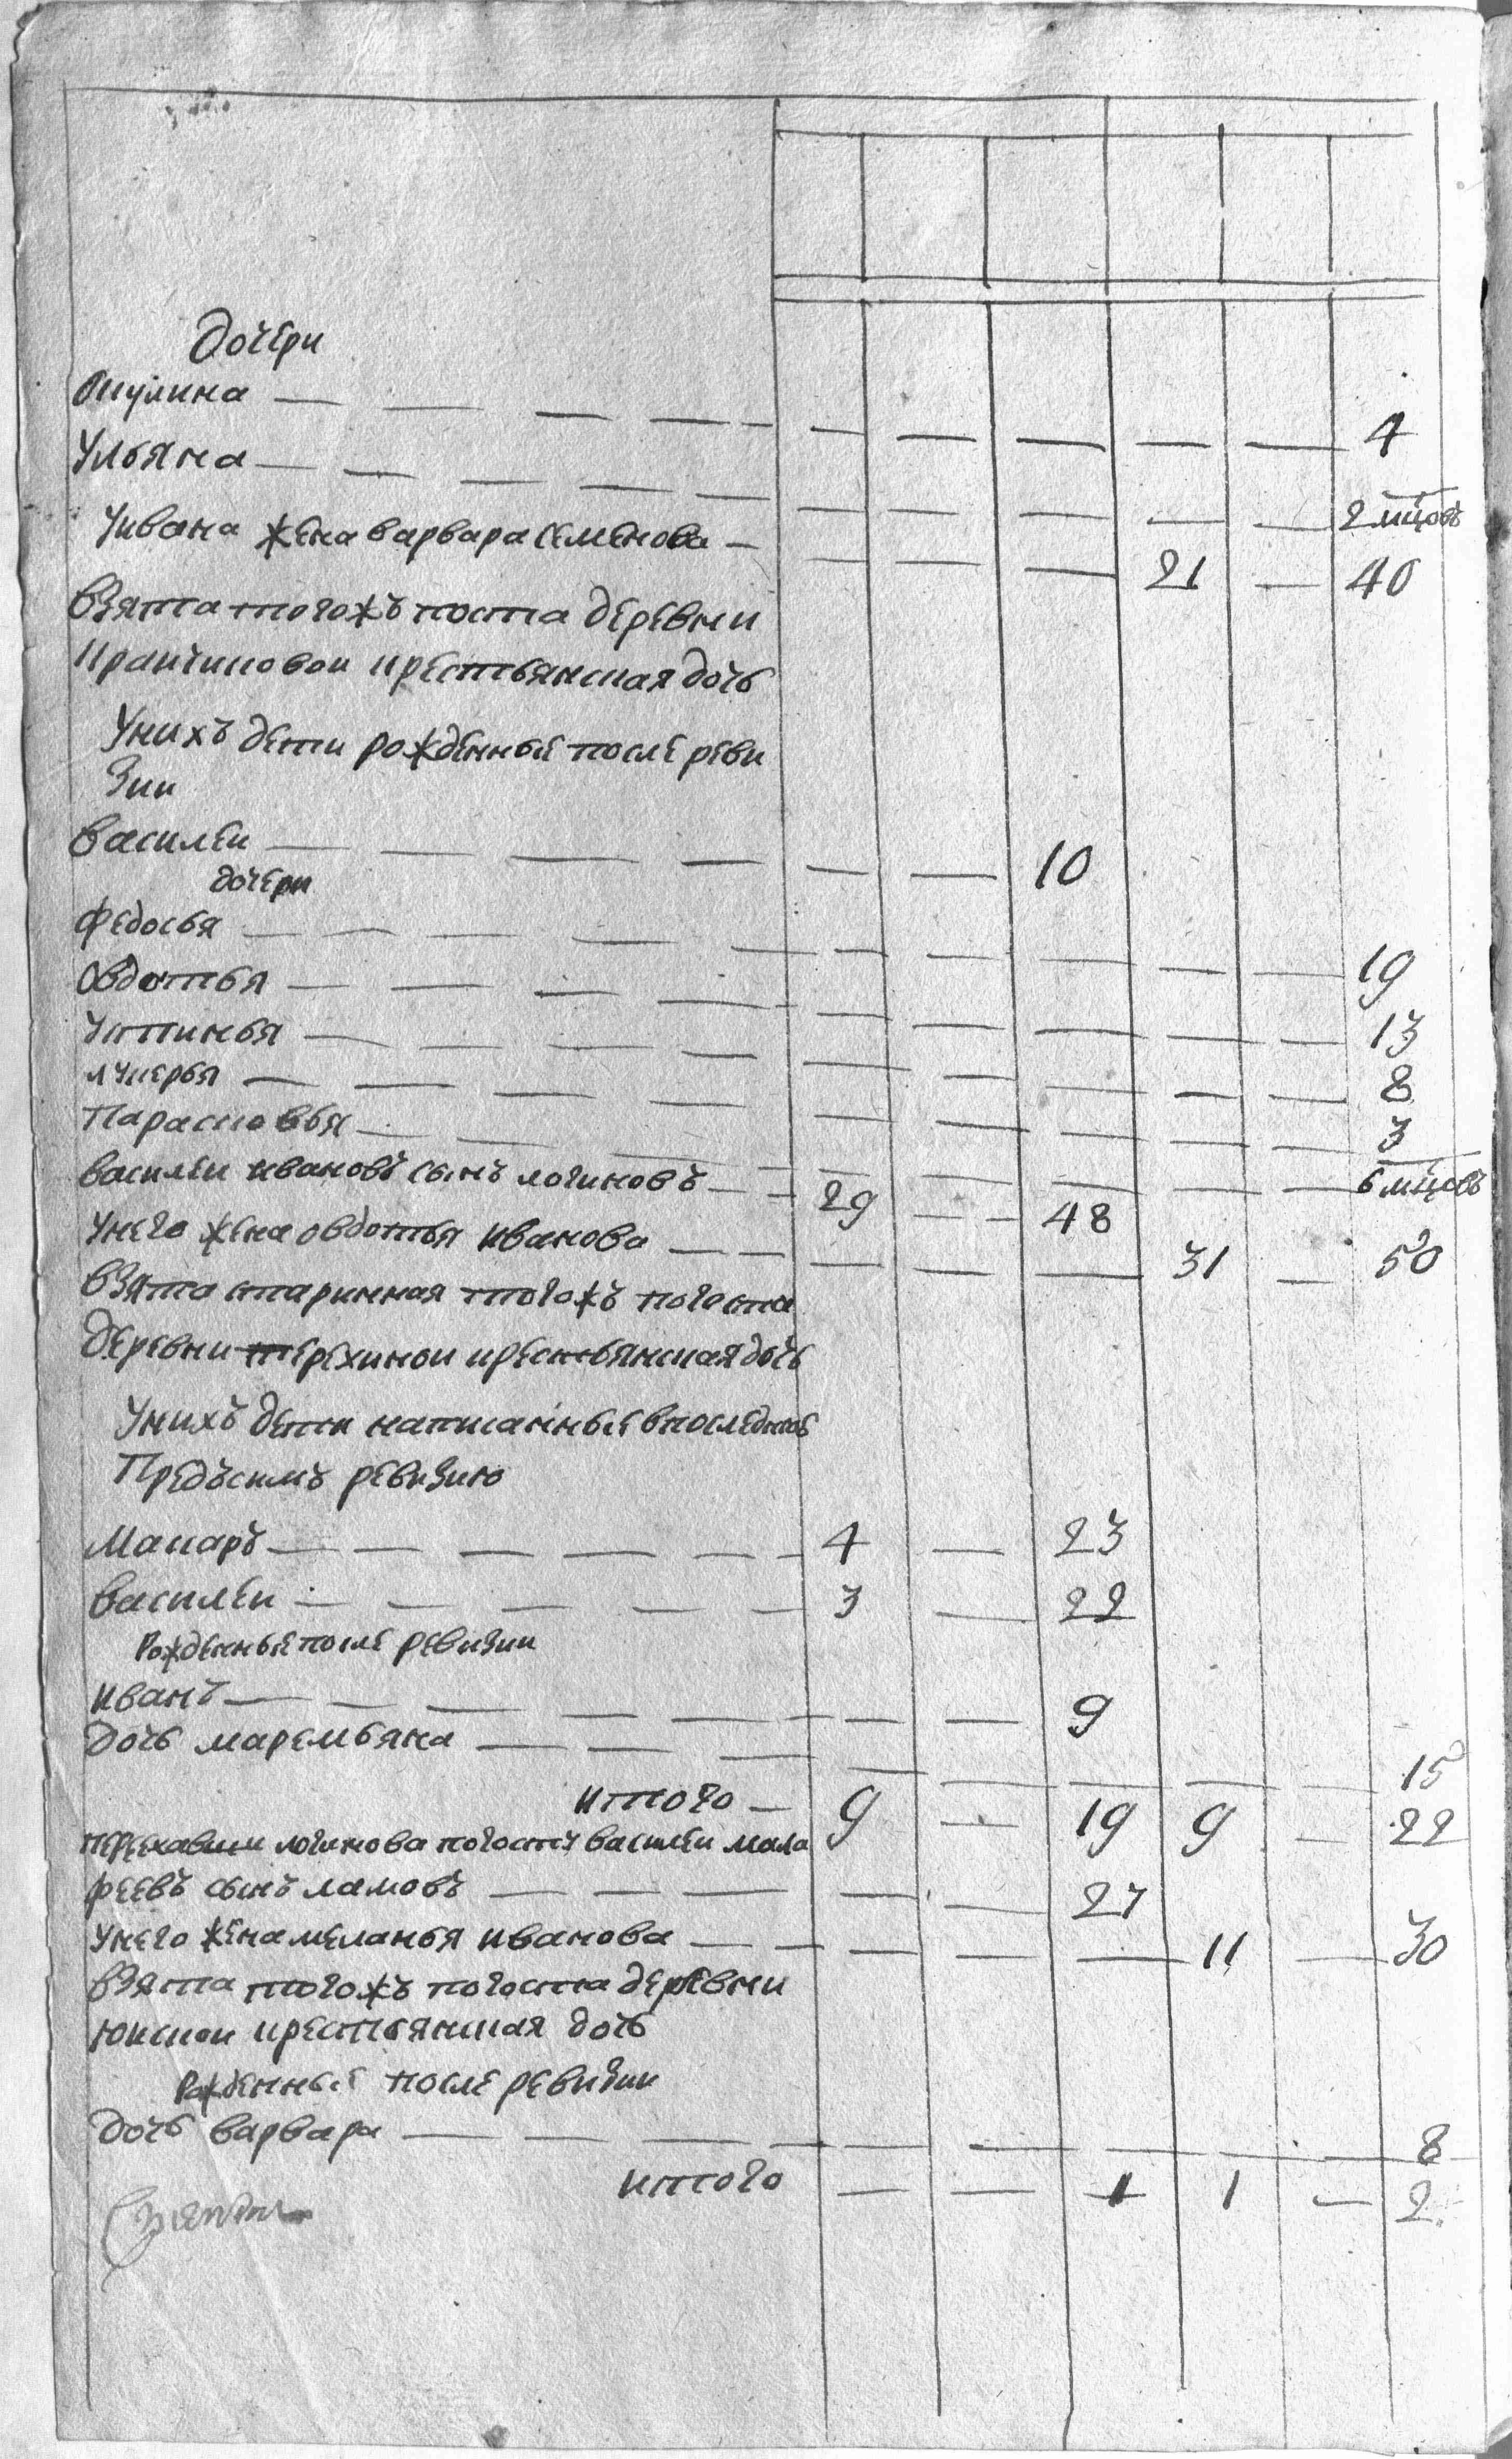 дочери
Акулина — — — — — — — — — — 4
Ульяна — — — — — — — — — — 2 мцовъ
Уивана жена варвара семенова — — — — 21 — 40
взята тогожъ погоста деревни
крестьянская дочь
Унихъ дети рожденные после реви
зии
василеи — — — — — — 10
дочери
федосья — — — — — — — — — — 19
овдотья — — — — — — — — — 13
устинья — — — — — — — — — 8
лукерья — — — — — — — — — 3
Парасковья — — — — — — — — — 6 мцовъ
василеи ивановъ сынъ логиновъ — — 29 — — 48
Унего жена овдотья иванова — — — — — 31 — 50
взята старинная тогожъ погоста
деревни терехинои крестьянская дочь
Унихъ дети написанные впоследнюю
Предъсимъ ревизию
Макаръ — — — — — — 4 — 23
василеи — — — — — 3 — 22
Рожденные после ревизии
иванъ — — — — — — — — 9
дочь маремьяна — — — — — — — — 15
итого — 9 — 19 9 — 22
логинова погосту василеи мала
феевъ сынъ ламовъ — — — — — 27
Унего жена меланья иванова — — — — — 11 — 30
взята тогожъ погоста деревни
юкскои крестьянская дочь
Рожденные после ревизии
дочь варвара — — — — — — — — — 8
итого — — 1 1 — 2